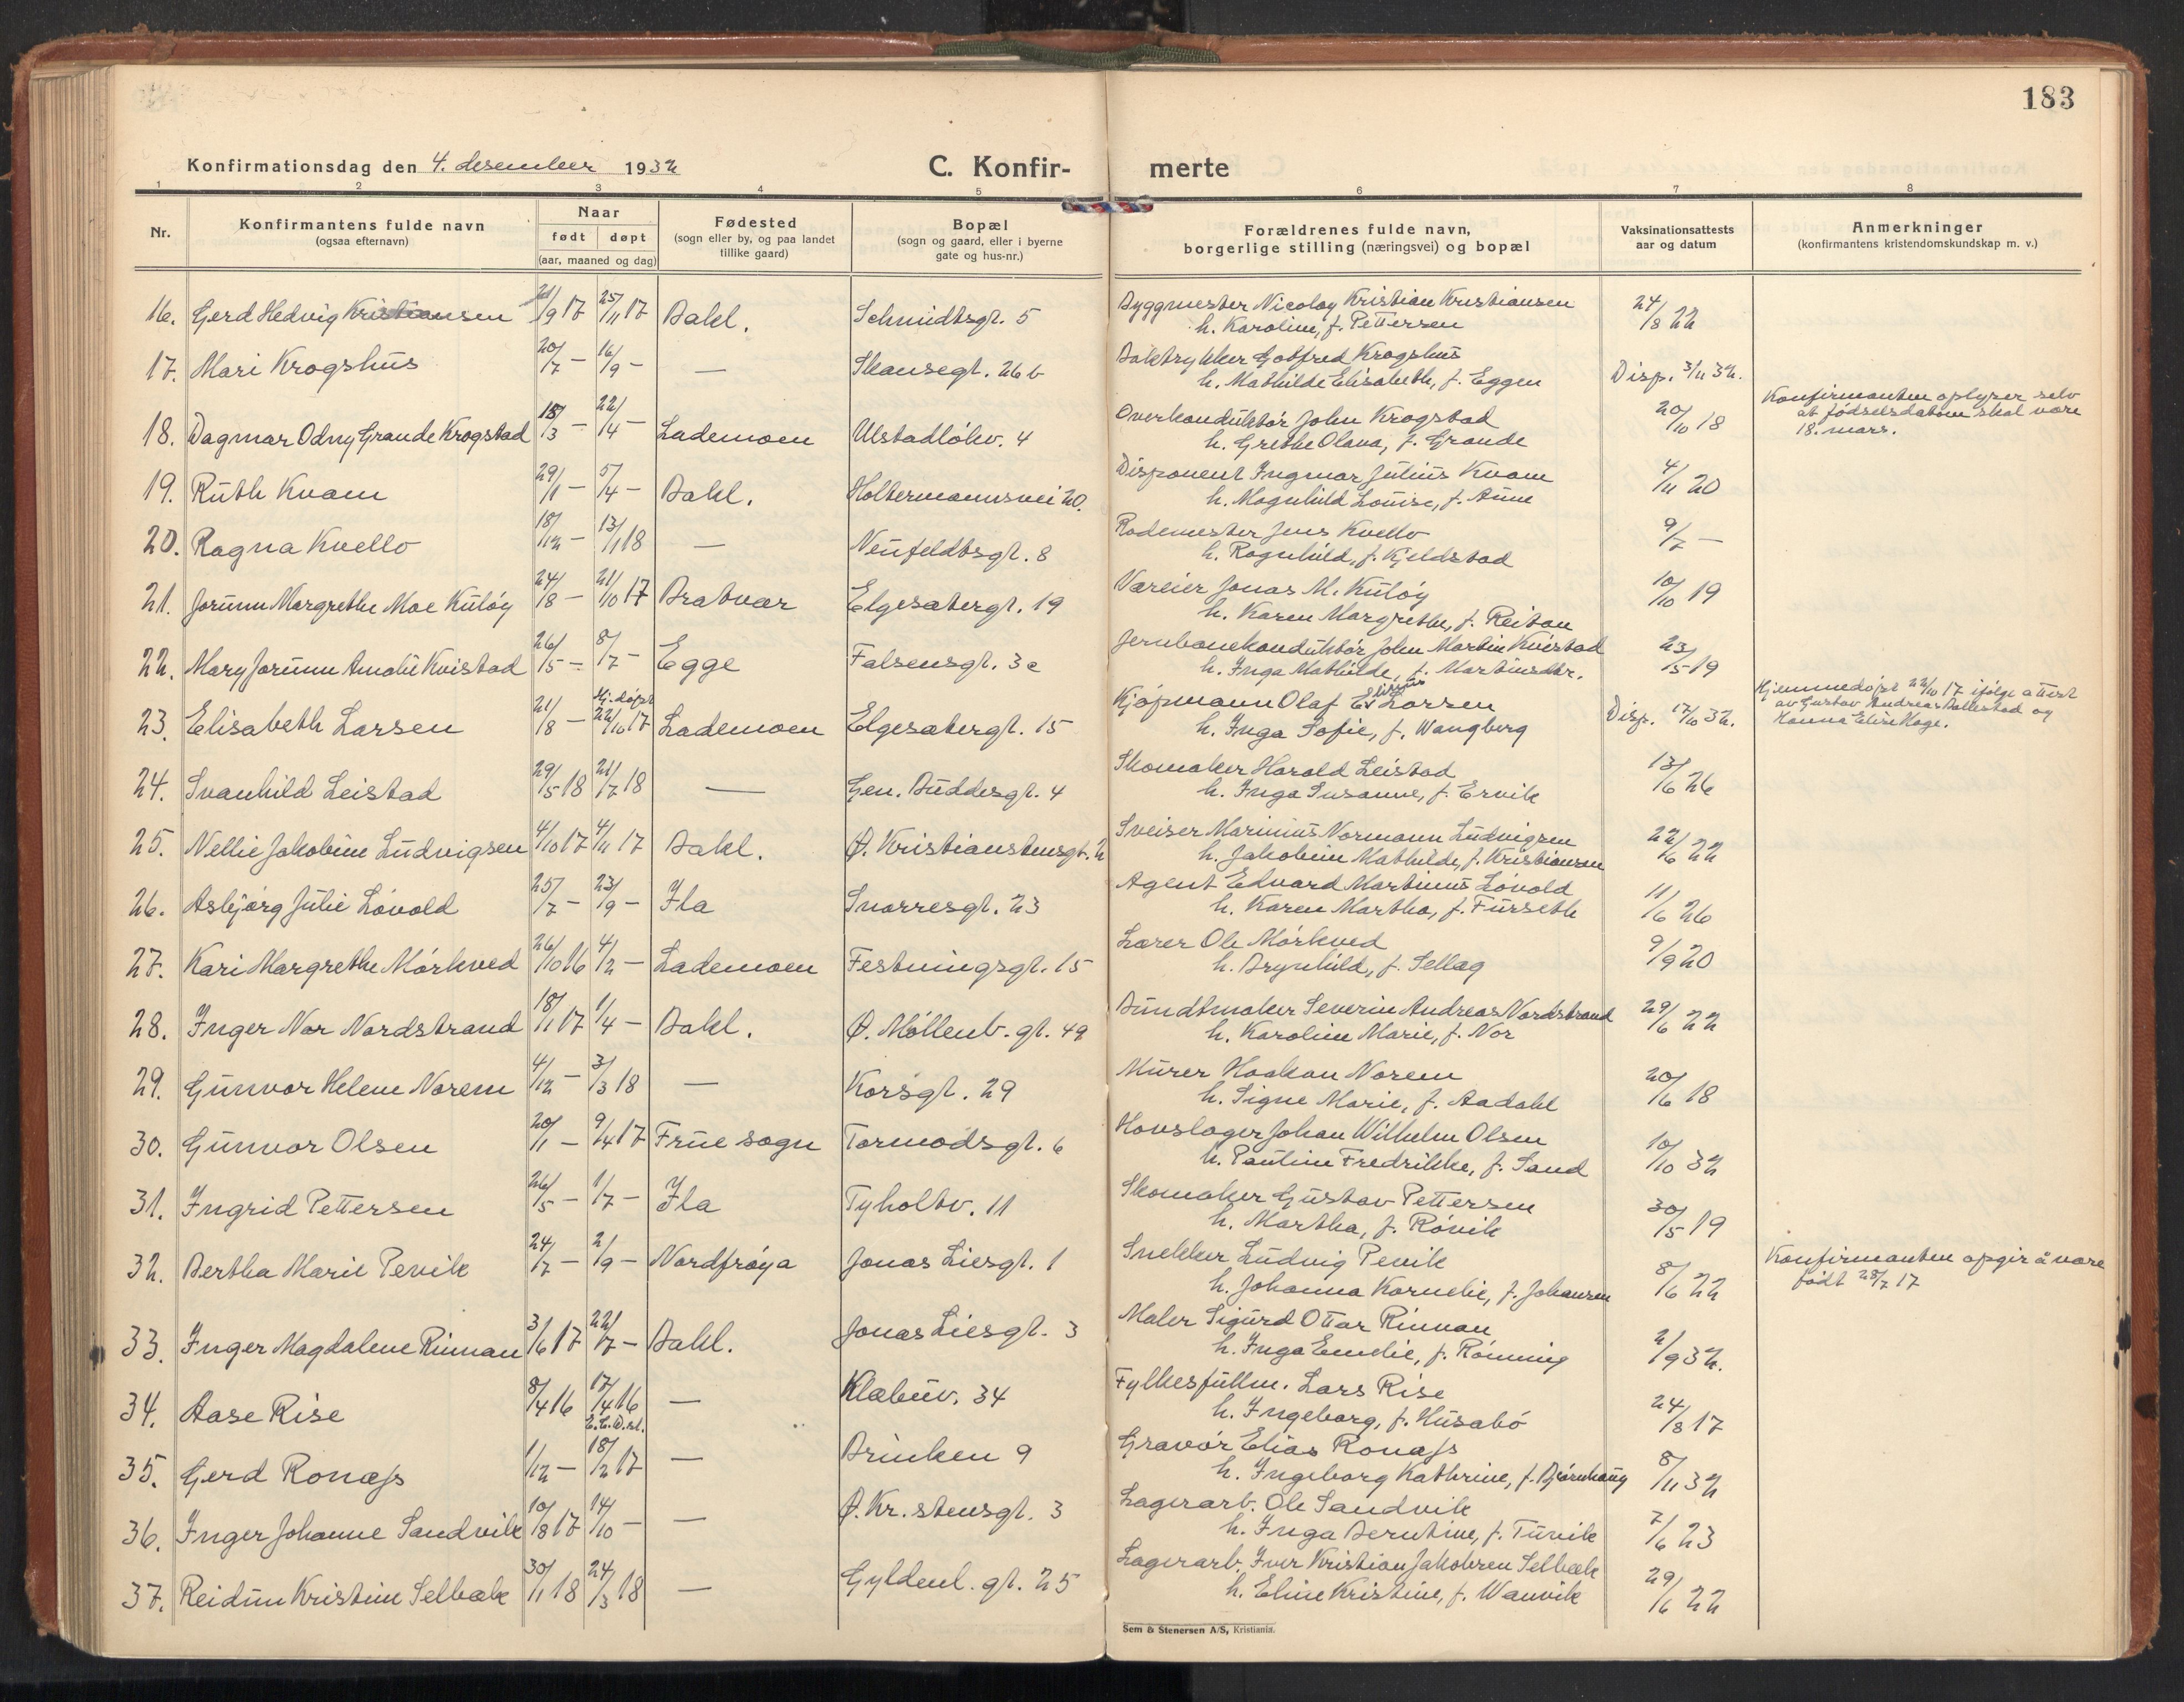 183
Konfirmationsdag den 4. desember 1932
C. Konfir- merte
1 2 3 4 5 6 7 8
Nr.
Konfirmantens fulde navn
(ogsaa efternavn)
Naar
født døpt
(aar, maaned og dag)
Fødested
(sogn eller by, og paa landet
tillike gaard)
Bopæl
(sogn og gaard, eller i byerne
gate og hus-nr.)
Forældrenes fulde navn,
borgerlige stilling (næringsvei) og bopæl
Vaksinationsattests
aar og datum
Anmerkninger
(konfirmantens kristendomskundskap m. v.)
16. Gerd Hedvig Kristiansen 21/9 17 25/11 17 Bakl. Schmidtsgt. 5 Byggmester Nicolay Kristian Kristiansen 24/8 22
h. Karoline, f. Pettersen
17. Mari Krogshus 20/7 — 16/9 — — Skansegt. 26 b Boktrykker Gotfred Krogshus Disp. 3/11 32.
h. Mathilde Elisabeth, f. Eggen
18. Dagmar Odny Grande Krogstad 18/3 — 22/4 — Lademoen Ulstadløkv. 4 Overkonduktør John Krogstad 20/10 18 Konfirmanten oplyser selv
h. Grethe Olava, f. Grande at fødselsdatoen skal være
18. mars.
19. Ruth Kvam 29/1 — 5/4 — Bakl. Holtermannsvei 20. Disponent Ingmar Julius Kvam 4/11 20
h. Magnhild Louise, f. Aune
20. Ragna Kvello 18/12 — 13/1 18 — Neufeldtsgt. 8 Rodemester Jens Kvello 9/7 —
h. Ragnhild, f. Kjeldstad
21. Jorunn Margrethe Moe Kuløy 24/8 — 21/10 17 Bratvær Elgesætergt. 19 Væreier Jonas M. Kuløy 10/10 19
h. Karen Margrethe, f. Reitan
22. Mary Jorunn Amalie Kvistad 26/5 — 8/7 — Egge Falsensgt. 3c Jernbanekonduktør John Martin Kvistad 23/5 19
h. Inga Mathilde, f. Martinsdtr.
23. Elisabeth Larsen 21/8 — Hj. døpt 22/10 17 Lademoen Elgesætergt. 15 Kjøpmann Olaf Larsen Disp. 17/10 32. Hjemmedøpt 22/10 17 ifølge attest
h. Inga Sofie, f. Wangberg av Gustav Andreas Ballestad og
Hanna Elise Hage.
24. Svanhild Leistad 29/5 18 21/7 18 — Gen. Buddesgt. 4 Skomaker Harald Leistad 13/6 26
h. Inga Susanne, f. Ervik
25. Nellie Jakobine Ludvigsen 4/10 17 4/11 17 Bakl. Ø. Kristianstensgt. 2 Sveiser Marinius Normann Ludvigsen 22/6 22
h. Jakobine Mathilde, f. Kristiansen
26. Asbjørg Julie Løvold 25/7 — 23/9 — Ila Snorresgt. 23 Agent Edvard Martinus Løvold 11/6 26
h. Karen Martha, f. Furseth
27. Kari Margrethe Mørkved 26/10 16 4/2 — Lademoen Festningsgt. 15 Lærer Ole Mørkved 9/9 20
h. Brynhild, f. Sellæg
28. Inger Nor Nordstrand 18/1 17 1/4 — Bakl. Ø. Møllenb. gt. 49 Bundtmaker Severin Andreas Nordstrand 29/6 22
h. Karoline Marie, f. Nor
29. Gunvor Helene Norem 4/12 — 3/3 18 — Korsgt. 29 Murer Haakon Norem 20/6 18
h. Signe Marie, f. Aadahl
30. Gunvor Olsen 20/1 — 9/4 17 Frue sogn Tormodsgt. 6 Hovslager Johan Wilhelm Olsen 10/10 32
h. Pauline Fredrikke, f. Sand
31. Ingrid Pettersen 26/5 — 1/7 — Ila Tyholtv. 11 Skomaker Gustav Pettersen 30/5 19
h. Martha, f. Røvik
32. Bertha Marie Pevik 24/7 — 2/9 — Nordfrøya Jonas Liesgt. 1 Snekker Ludvig Pevik 8/6 22 Konfirmanten opgir å være
h. Johanna Kornelie, f. Johansen født 28/7 17
33. Inger Magdalene Rinnan 3/6 17 22/7 — Bakl. Jonas Liesgt. 3 Maler Sigurd Ottar Rinnan 2/9 32.
h. Inga Emelie, f. Rønning
34. Aase Rise 8/4 16 17/4 16 — Klæbuv. 34 Fylkesfullm. Lars Rise 24/8 17
h. Ingeborg, f. Husabø
35. Gerd Ronæss 1/12 — 18/2 17 — Brinken 9 Gravør Elias Ronæss 8/11 32
h. Ingeborg Kathrine, f. Bjørnhaug
36. Inger Johanne Sandvik 10/8 17 14/10 — — Ø. Kr. stensgt. 3 Lagerarb. Ole Sandvik 7/6 23
h. Inga Berntine, f. Turvik
37. Reidun Kristine Selbæk 30/1 18 24/3 18 — Gyldenl. gt. 25 Lagerarb. Iver Kristian Jakobsen Selbæk 29/6 22
h. Eline Kristine, f. Wanvik
Sem & Stenersen A/S, Kristiania.